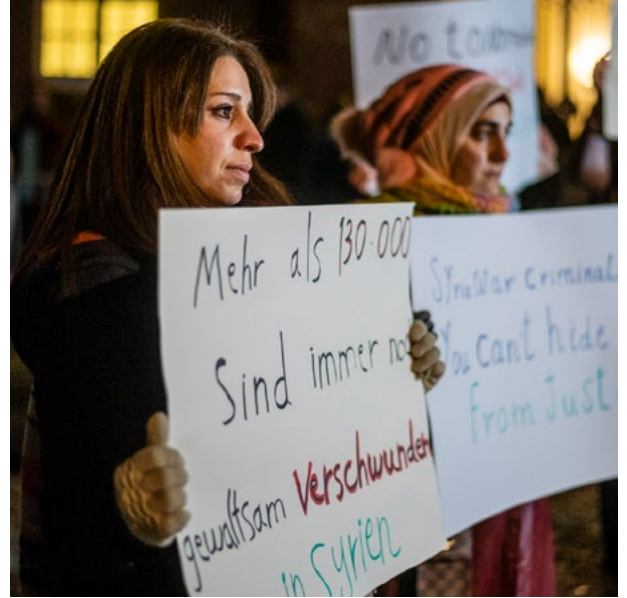 No
Mehr als 130.000
Sind immer no
gewaltsam Verschwunden
in Syrien
Syria War Criminal
You can't hide
From Just